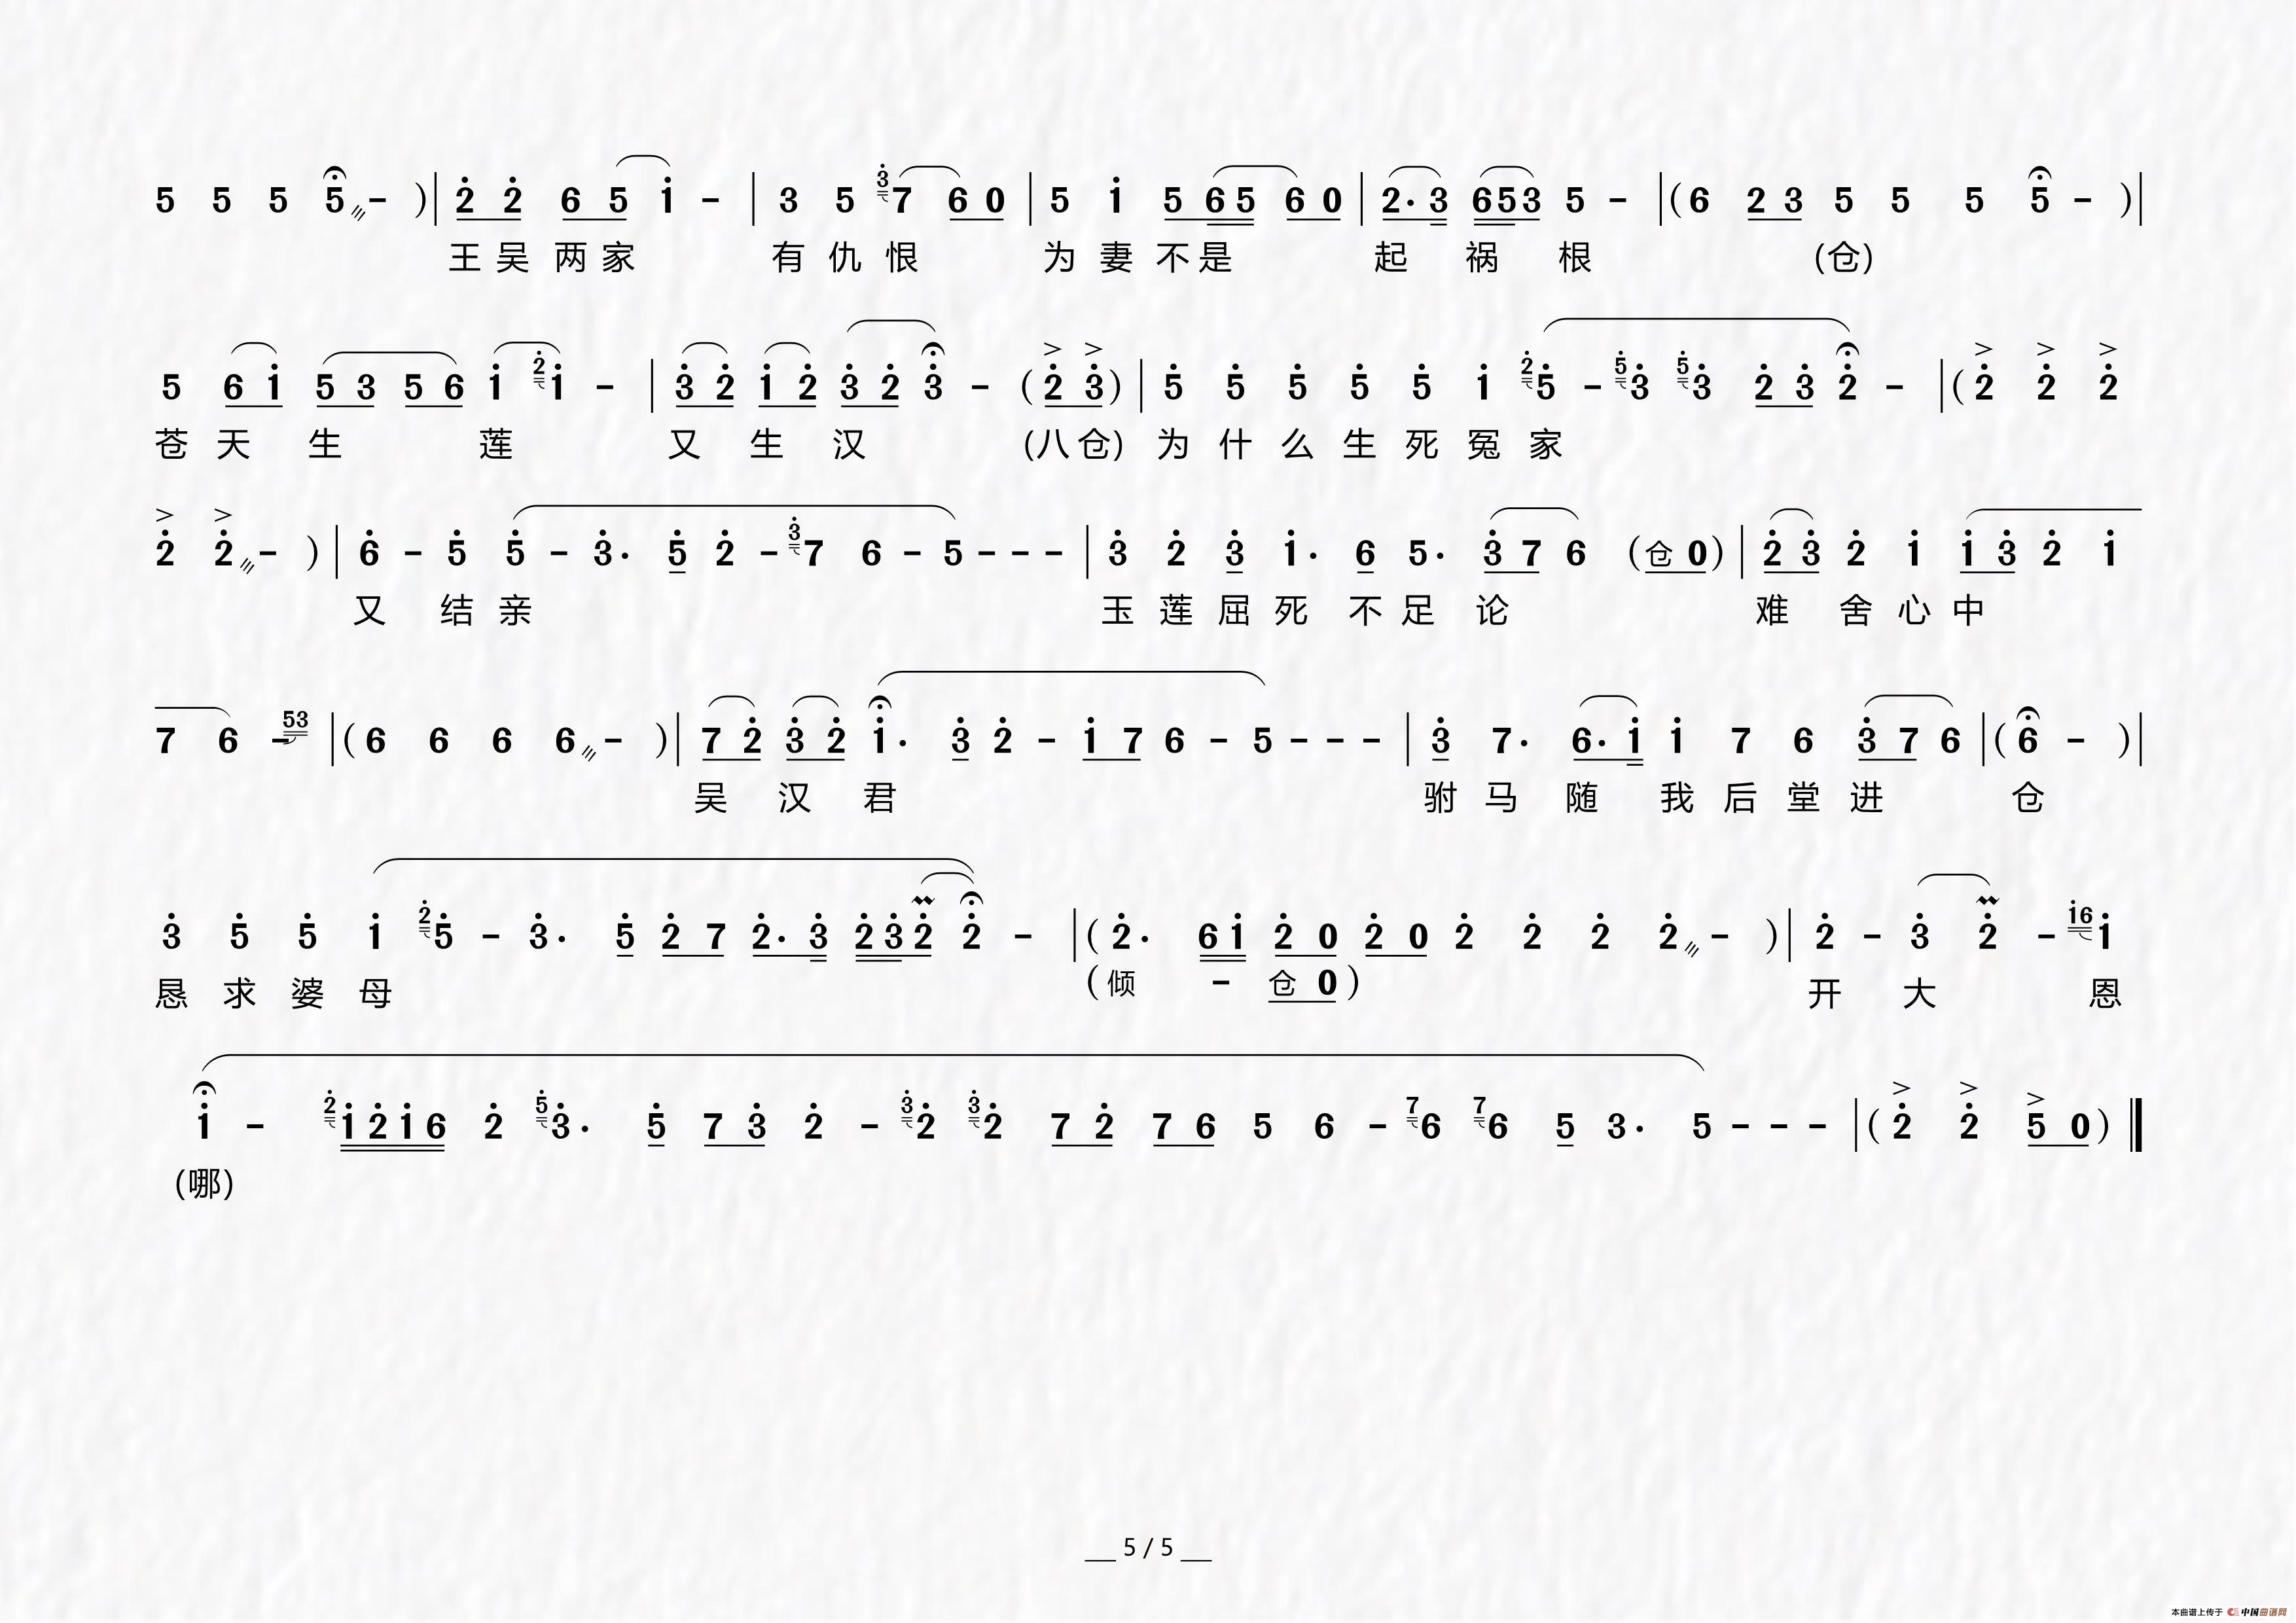 5 5 5 5 - ) | 2 2 6 5 i - | 3 5 3 7 6 0 | 5 i 5 6 5 6 0 | 2· 3 6 5 3 5 - | ( 6 2 3 5 5 5 5 - ) |
王 吴 两 家 有 仇 恨 为 妻 不 是 起 祸 根 (仓)
5 6 i 5 3 5 6 i 2 i - | 3 2 i 2 3 2 3 - ( 2 3 ) | 5 5 5 5 5 i 2 5 - 5 3 5 3 2 3 2 - | ( 2 2 2
苍 天 生 莲 又 生 汉 (八 仓) 为 什 么 生 死 冤 家
2 2 - ) | 6 - 5 5 - 3· 5 2 - 3 7 6 - 5 - - - | 3 2 3 i· 6 5· 3 7 6 ( 仓 0 ) | 2 3 2 i i 3 2 i
又 结 亲 玉 莲 屈 死 不 足 论 难 舍 心 中
7 6 - 53 | ( 6 6 6 6 - ) | 7 2 3 2 i· 3 2 - i 7 6 - 5 - - - | 3 7· 6· i i 7 6 3 7 6 | ( 6 - ) |
吴 汉 君 驸 马 随 我 后 堂 进 仓
3 5 5 i 2 5 - 3· 5 2 7 2· 3 2 3 2 2 - | ( 2· 6 i 2 0 2 0 2 2 2 2 - ) | 2 - 3 2 - i6 i
( 倾 - 仓 0 )
恳 求 婆 母 开 大 恩
i - 2 i 2 i 6 2 5 3· 5 7 3 2 - 3 2 3 2 7 2 7 6 5 6 - 7 6 7 6 5 3· 5 - - - | ( 2 2 5 0 )
(哪)
5 / 5
本曲谱上传于 中国曲谱网